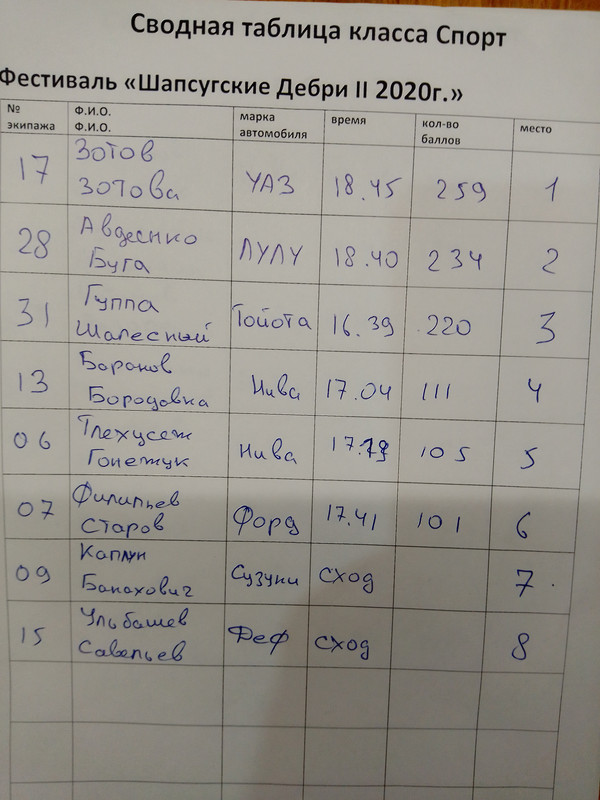 Сводная таблица класса Спорт
Фестиваль «Шапсугские Дебри II 2020г.»
№ экипажа Ф.И.О. Ф.И.О. марка автомобиля время кол-во баллов место
17 Зотов Зотова УАЗ 18.45 259 1
28 Авдеенко Буга ЛУЛУ 18.40 234 2
31 Гуппа Шалесный Тойота 16.39 220 3
13 Боронов Бородовка Нива 17.04 111 4
06 Тлехусеж Гонежук Нива 105 5
07 Филипьев Старов Форд 17.41 101 6
09 Каплун Банахович Сузуки сход 7
15 Ульбашев Савельев Феф сход 8